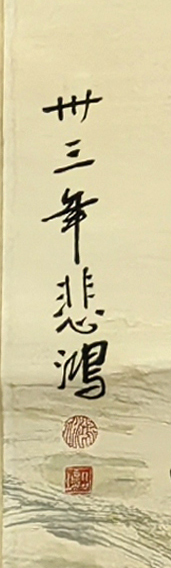 卅三年悲鴻